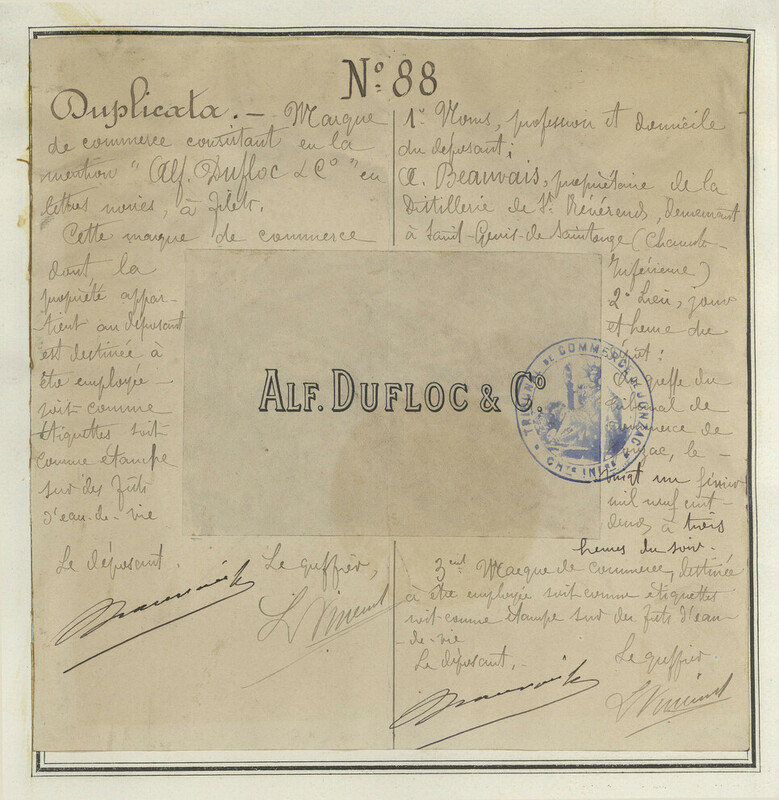 Nº 88
Duplicata. — Marque
de commerce consistant en la
mention "Alf. Dufloc & Cº" en
lettres noires, à filets.
Cette marque de commerce
dont la
propriété appar-
tient au déposant
est destinée à
être employée
soit comme
étiquettes soit
comme étampe
sur des fûts
d'eau-de-vie
Le déposant.
Le greffier,
L Vincent
1º Noms, profession et domicile
du déposant:
A. Beauvais, propriétaire de la
Distillerie de St Révérend, demeurant
à Saint-Genis-de-Saintonge (Charente-
Inférieure)
2º Lieu, jour
et heure du
dépôt:
Au greffe du
tribunal de
commerce de
Jonzac, le —
vingt un février
mil neuf cent
deux, à trois
heures du soir.
3ent Marque de commerce, destinée
à être employée soit comme étiquettes
soit comme étampe sur des fûts d'eau-
de-vie
Le déposant, —
Le greffier.
L Vincent
ALF. DUFLOC & Cº.
TRIBUNAL DE COMMERCE DE JONZAC
CHTE INFRE